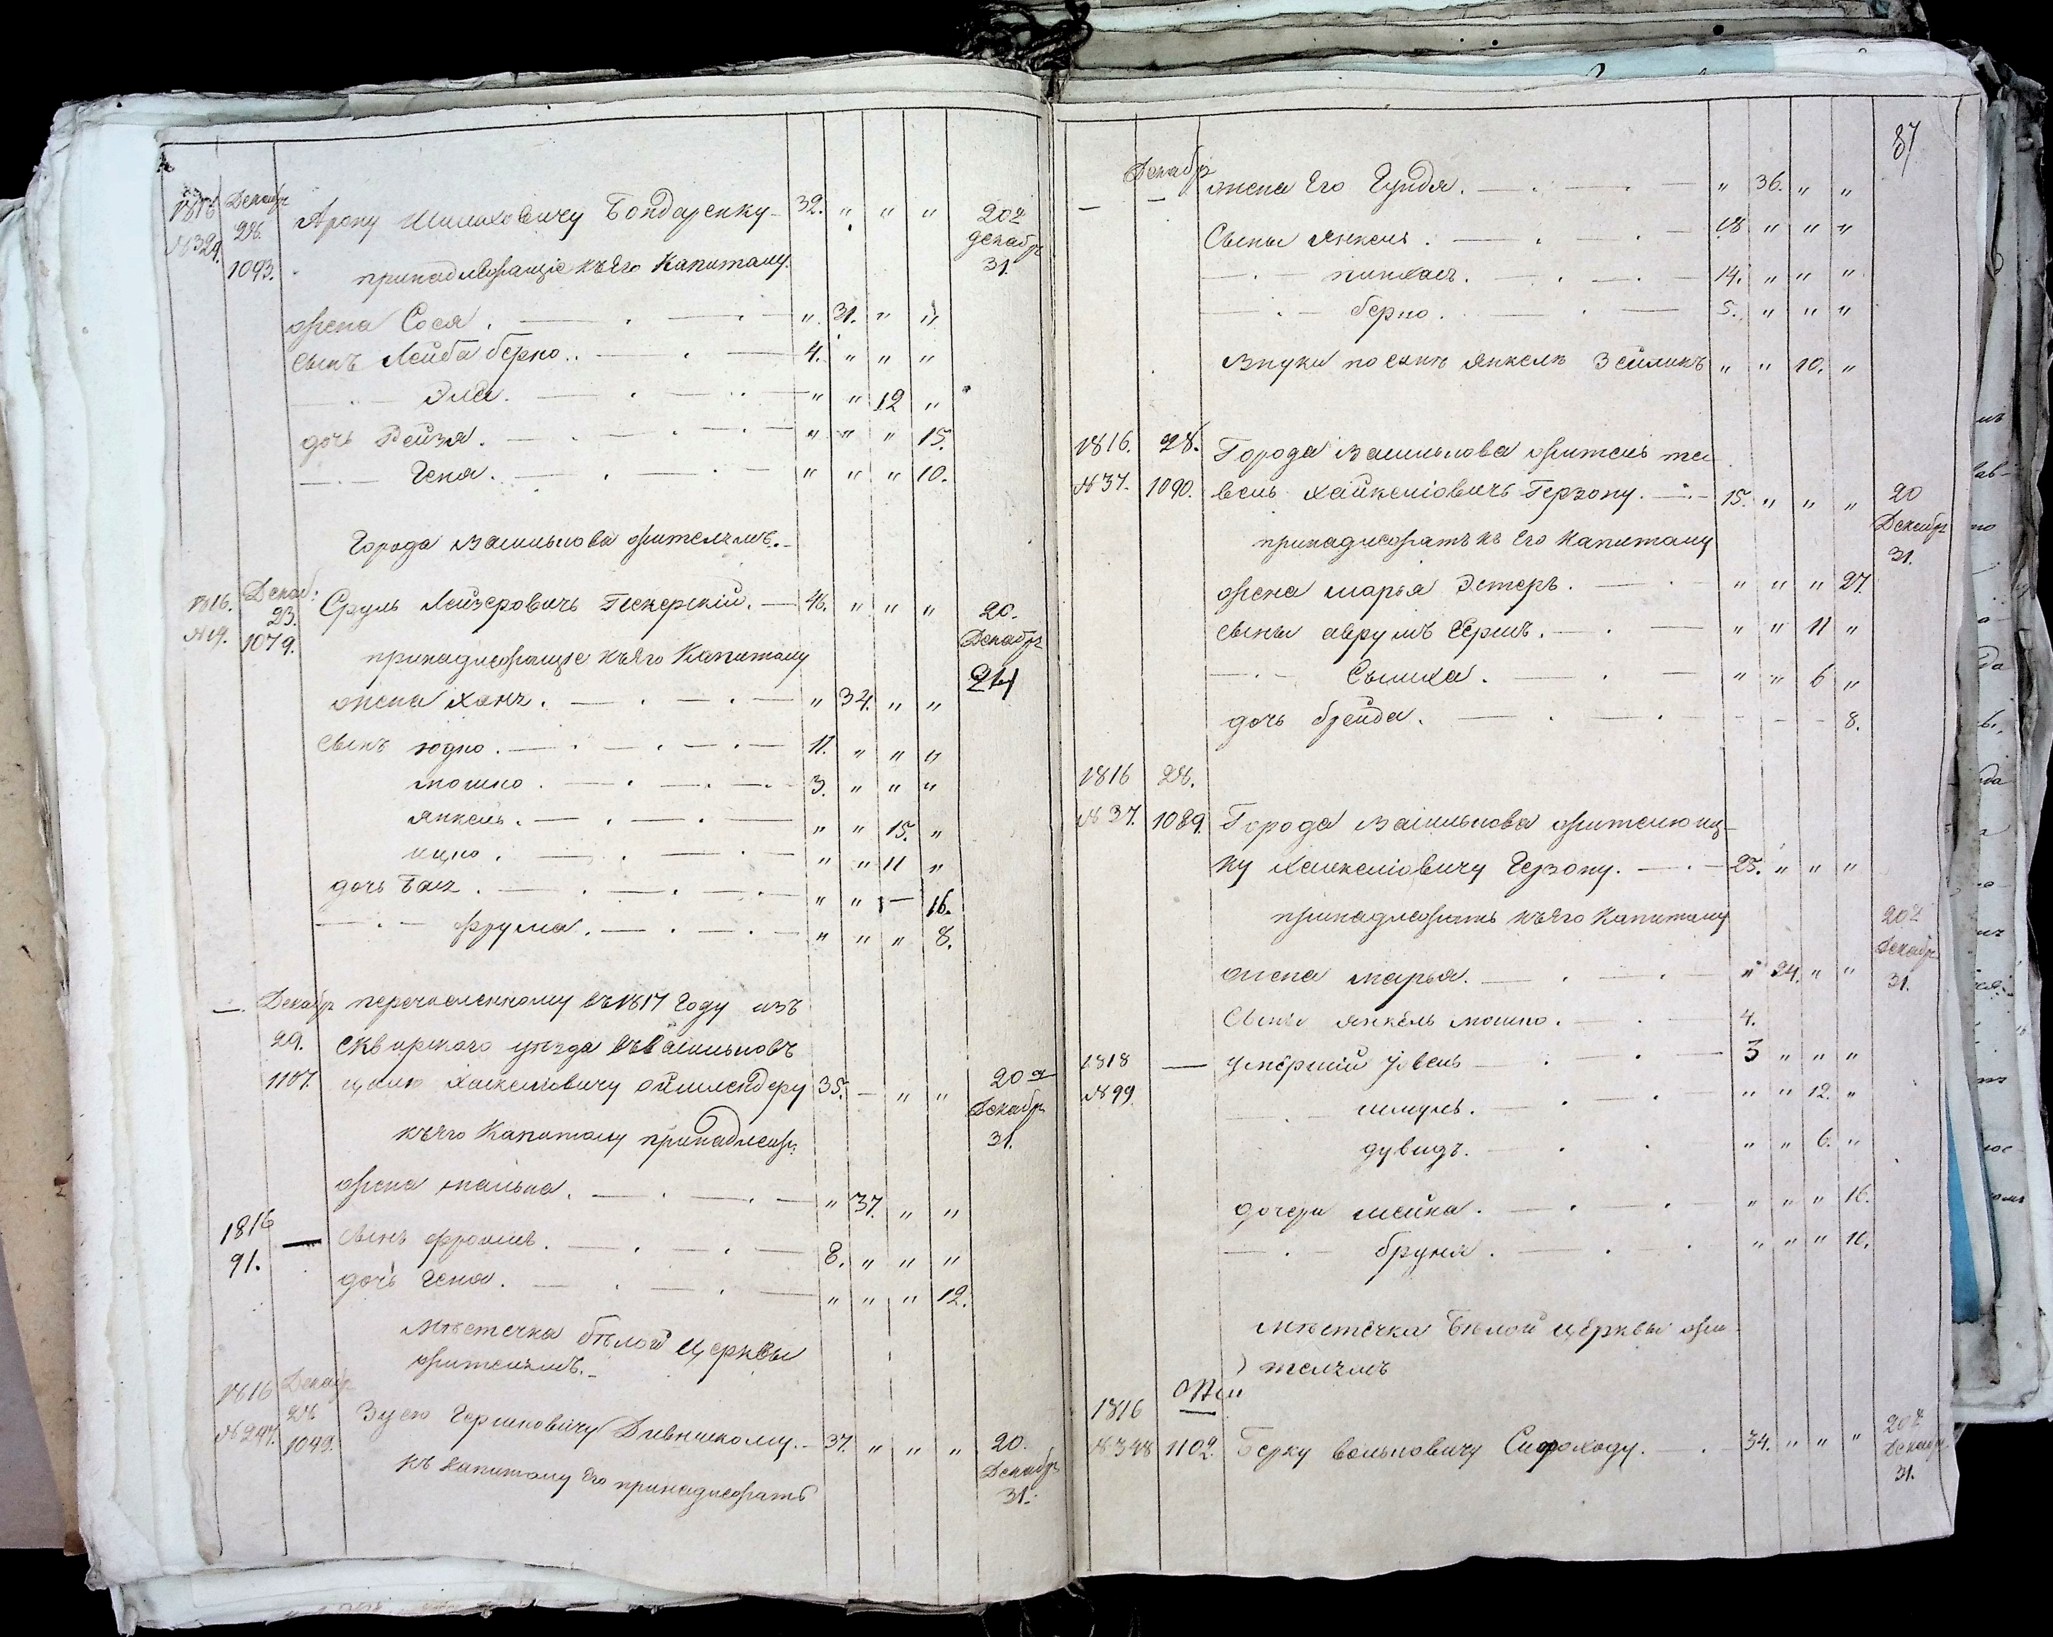 1816 Декабр
№329. 28. Арону Шлиомовичу Бондаренку 32. " " " 20го
1093. Декабр
принадлежащiе къ его Капиталу. 31.
жена Сося. " 31. " "
сынъ Лейба берко. 4. " " "
Эля. " " 12 "
дочь Рейзя. " " " 15.
Геня. " " " 10.
Города Василькова жителямъ.
1816. Декаб:
№14. 23. Сруль Лейзеровичъ Пекерскiй. 46. " " " 20.
1079. Декабр
принадлежащiе къ его Капиталу 24
жена Хая. " 34. " "
сынъ юдко. 11. " " "
мошко. 3. " " "
янкель. " " 15. "
ицко. " " 11 "
дочь Бася. " " — 16.
фрума. " " " 8.
Декабр перечисленному въ 1817 Году изъ
29. Сквирскаго уѣзда въ Васильковъ
1107. Хаскелiовичу 35. — " " 20го
Декабр
къ его Капиталу принадлеж: 31.
жена малька. " 37. " "
1816 — сынъ фроимъ. 8. " " "
91. дочь Геня. " " " 12.
Мѣстечка бѣлой Церквы
жителямъ.
1816 Декабр
№247. 28 Зусю Гершковичу Дивинскому. 37. " " " 20.
1049. Декабр
къ капиталу Его принадлежатъ 31.
87
Декабр
— — жена Его Гупдя. " 36. " "
Сыны янкель. 18 " " "
пинхасъ. 14. " " "
берко. 5. " " "
Внуки по сынѣ янкелѣ Зейликъ " " 10. "
1816. 28. Города Василькова житель ше
№37. 1090. вель хайкелiовичъ Герзону. 15. " " " 20
Декабр
принадлежатъ къ Его Капиталу 31.
жена марья Эстеръ. " " " 27.
сыны аврумъ Гершъ. " " 11 "
Сымха. " " 6 "
дочь брейда. - - - 8.
1816 28.
№37. 1089. Города Василькова жителю иц-
ку Хаскелiовичу Герзону. 25. " " "
принадлежатъ къ его Капиталу 20го
Декабр
жена марья. " 24. " " 31.
Сыны янкель мошко. 4.
1818 — умершiй Ювель 3 " " "
№99 шмуль. " " 12. "
дувидъ. " " 6. "
дочери шейна. " " " 16.
бруня. " " " 10.
Мѣстечка Бѣлой Церквы жи-
телямъ
1816
№348 1102. Берку вольковичу Скороходу. 34. " " " 20го
Декабр
31.